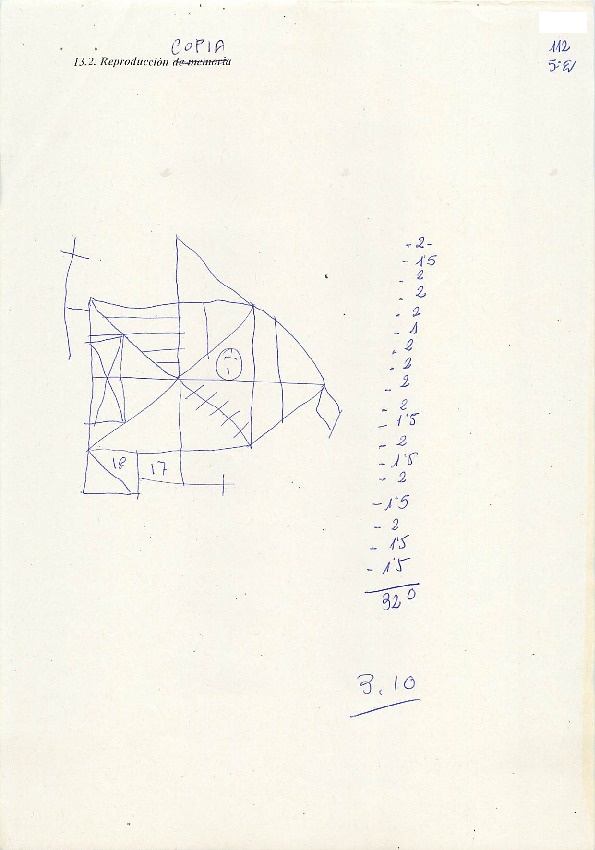 COPIA
13.2. Reproducción de memoria
112
5-E
- 2 -
- 1'5
- 2
- 2
- 2
- 1
- 2
- 2
- 2
- 2
- 1'5
- 2
- 1'5
- 2
- 1'5
- 2
- 1'5
- 1'5
32 0
18 17
3.10